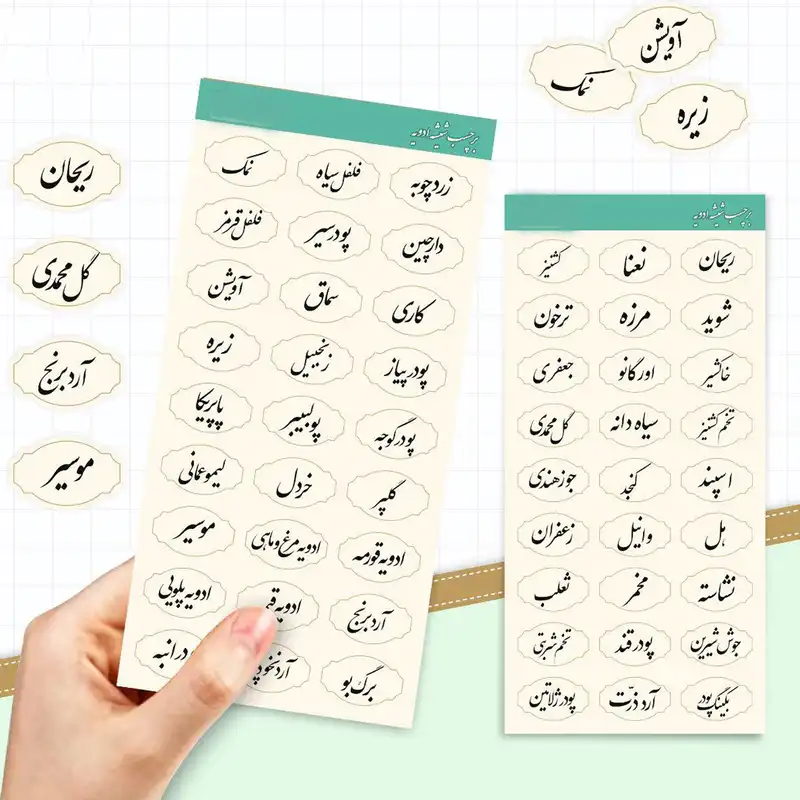 آویشن
نمک
زیره
ریحان
گل محمدی
آرد برنج
موسیر
برچسب شیشه ادویه
زردچوبه
فلفل سیاه
نمک
دارچین
پودر سیر
فلفل قرمز
کاری
سماق
آویشن
پودر پیاز
زنجبیل
زیره
پودر گوجه
پولبیبر
پاپریکا
گلپر
خردل
لیمو عمانی
ادویه قورمه
ادویه مرغ و ماهی
موسیر
آرد برنج
ادویه
ادویه پلویی
برگ بو
آرد نخود
برچسب شیشه ادویه
ریحان
نعنا
گشنیز
شوید
مرزه
ترخون
خاکشیر
اورگانو
جعفری
تخم گشنیز
سیاه دانه
گل محمدی
اسپند
کنجد
جوز هندی
هل
وانیل
زعفران
نشاسته
مخمر
ثعلب
جوش شیرین
پودر قند
تخم شربتی
بکینگ پودر
آرد ذرّت
پودر ژلاتین